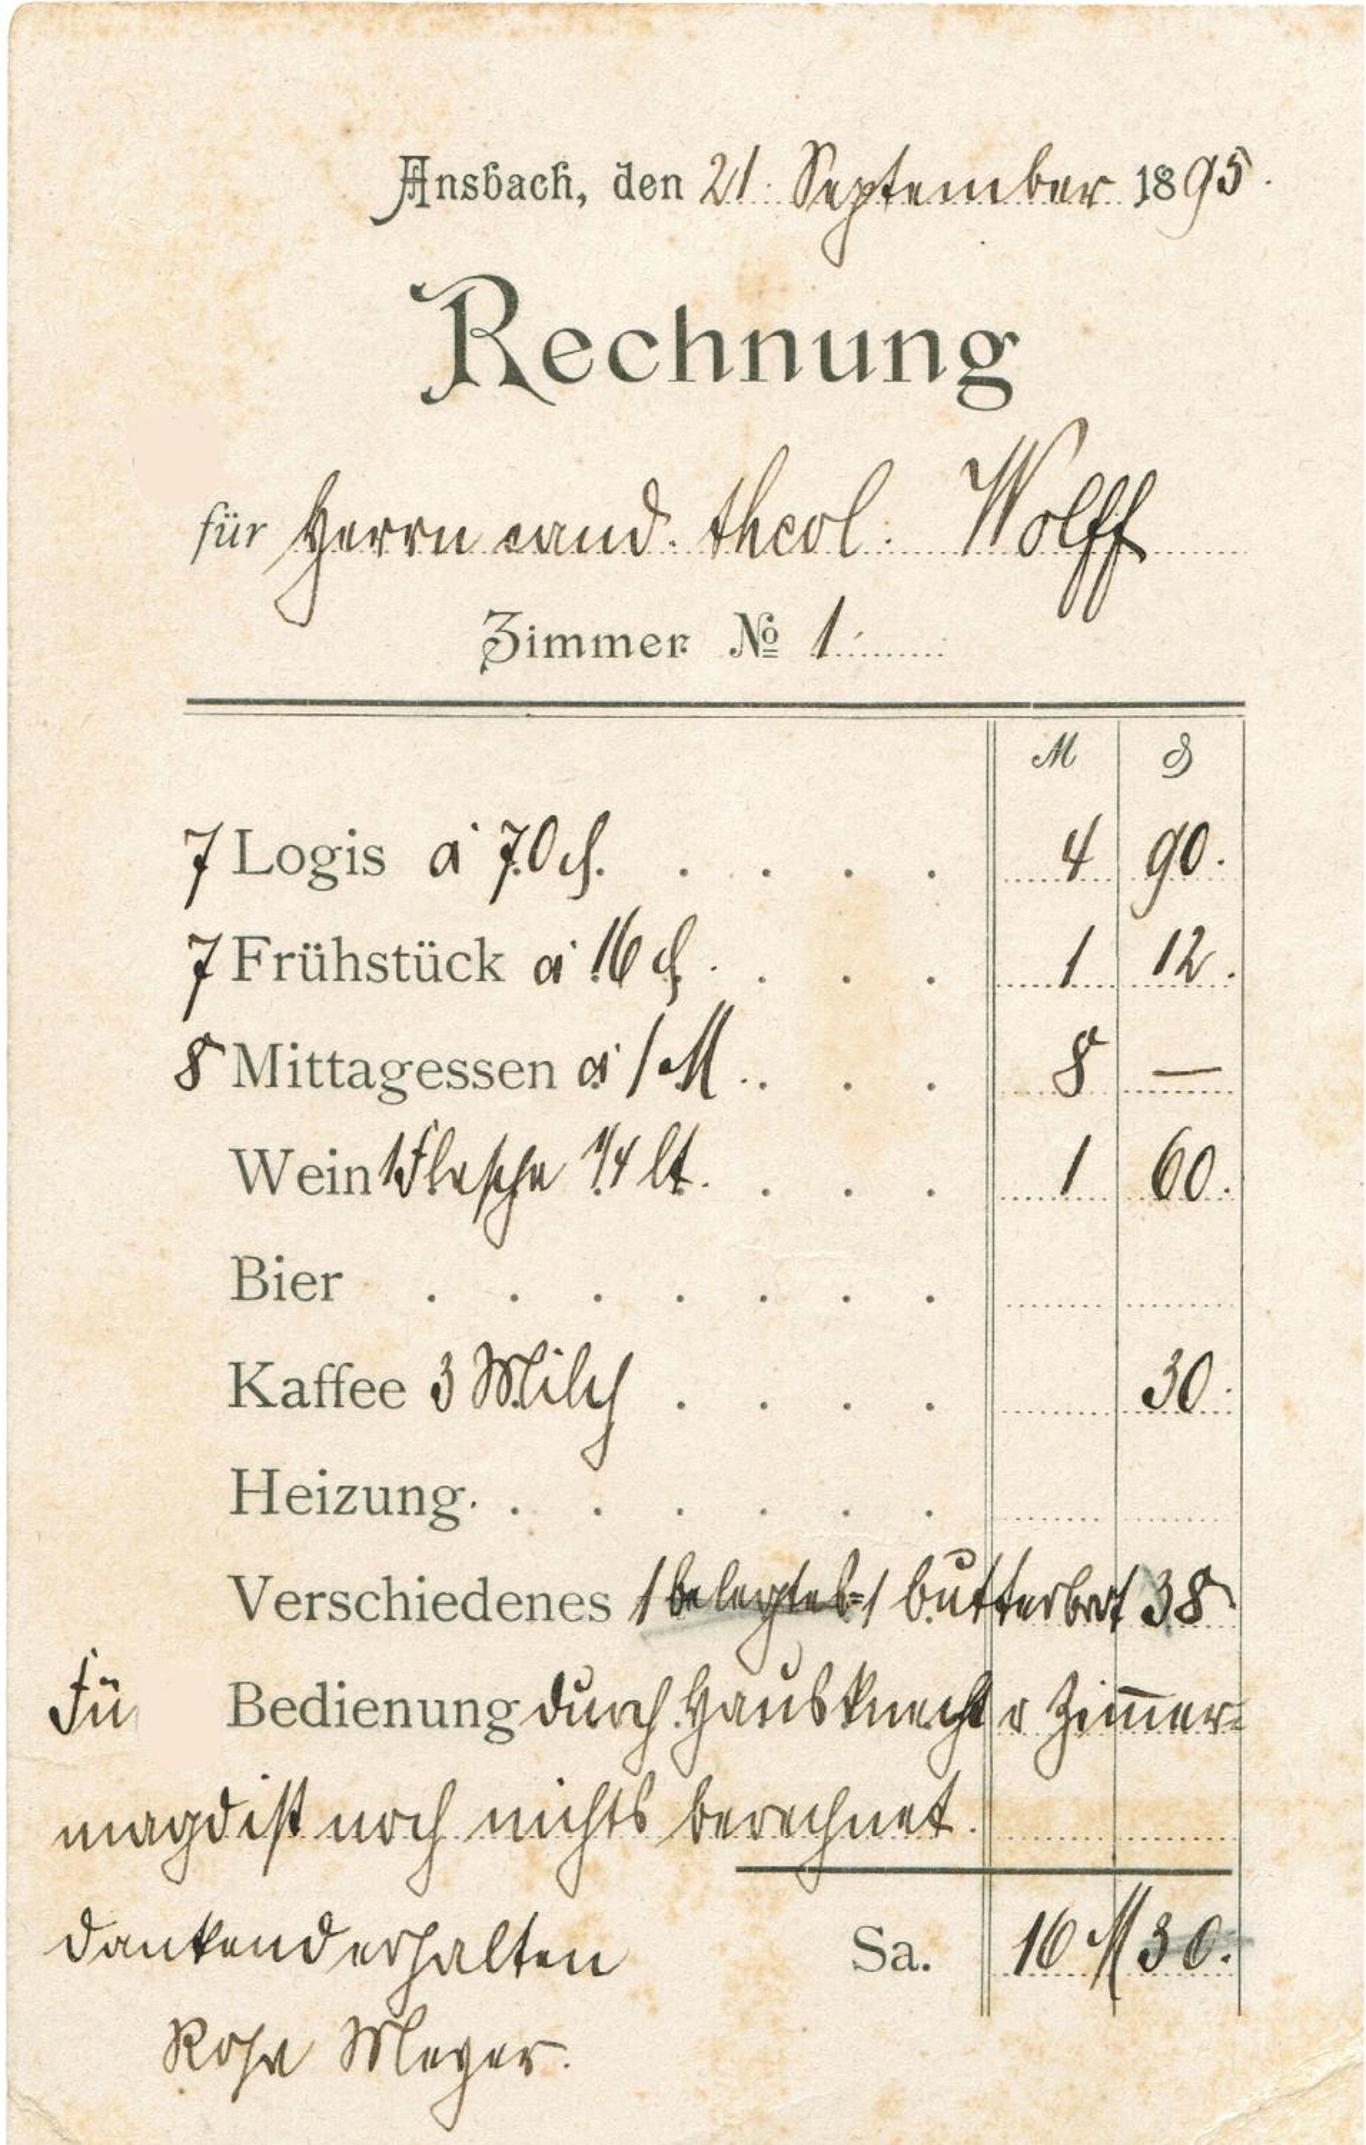 Ansbach, den 21. September 1895.
Rechnung
für Herrn cand. theol. Wolff
Zimmer No 1.
M ₰
7 Logis à 70 ₰. 4 90.
7 Frühstück à 16 ₰. 1 12.
8 Mittagessen à 1 M. 8 —
Wein 1 Flasche 1/4 lt. 1 60.
Bier
Kaffee 3 Milch 30.
Heizung.
Verschiedenes 1 belegtes = 1 butterbrot 38
Fü Bedienung durch Hausknecht u Zim̅er=
magd ist noch nichts berechnet.
Sa. 16 M 30.
dankend erhalten
Meyer.